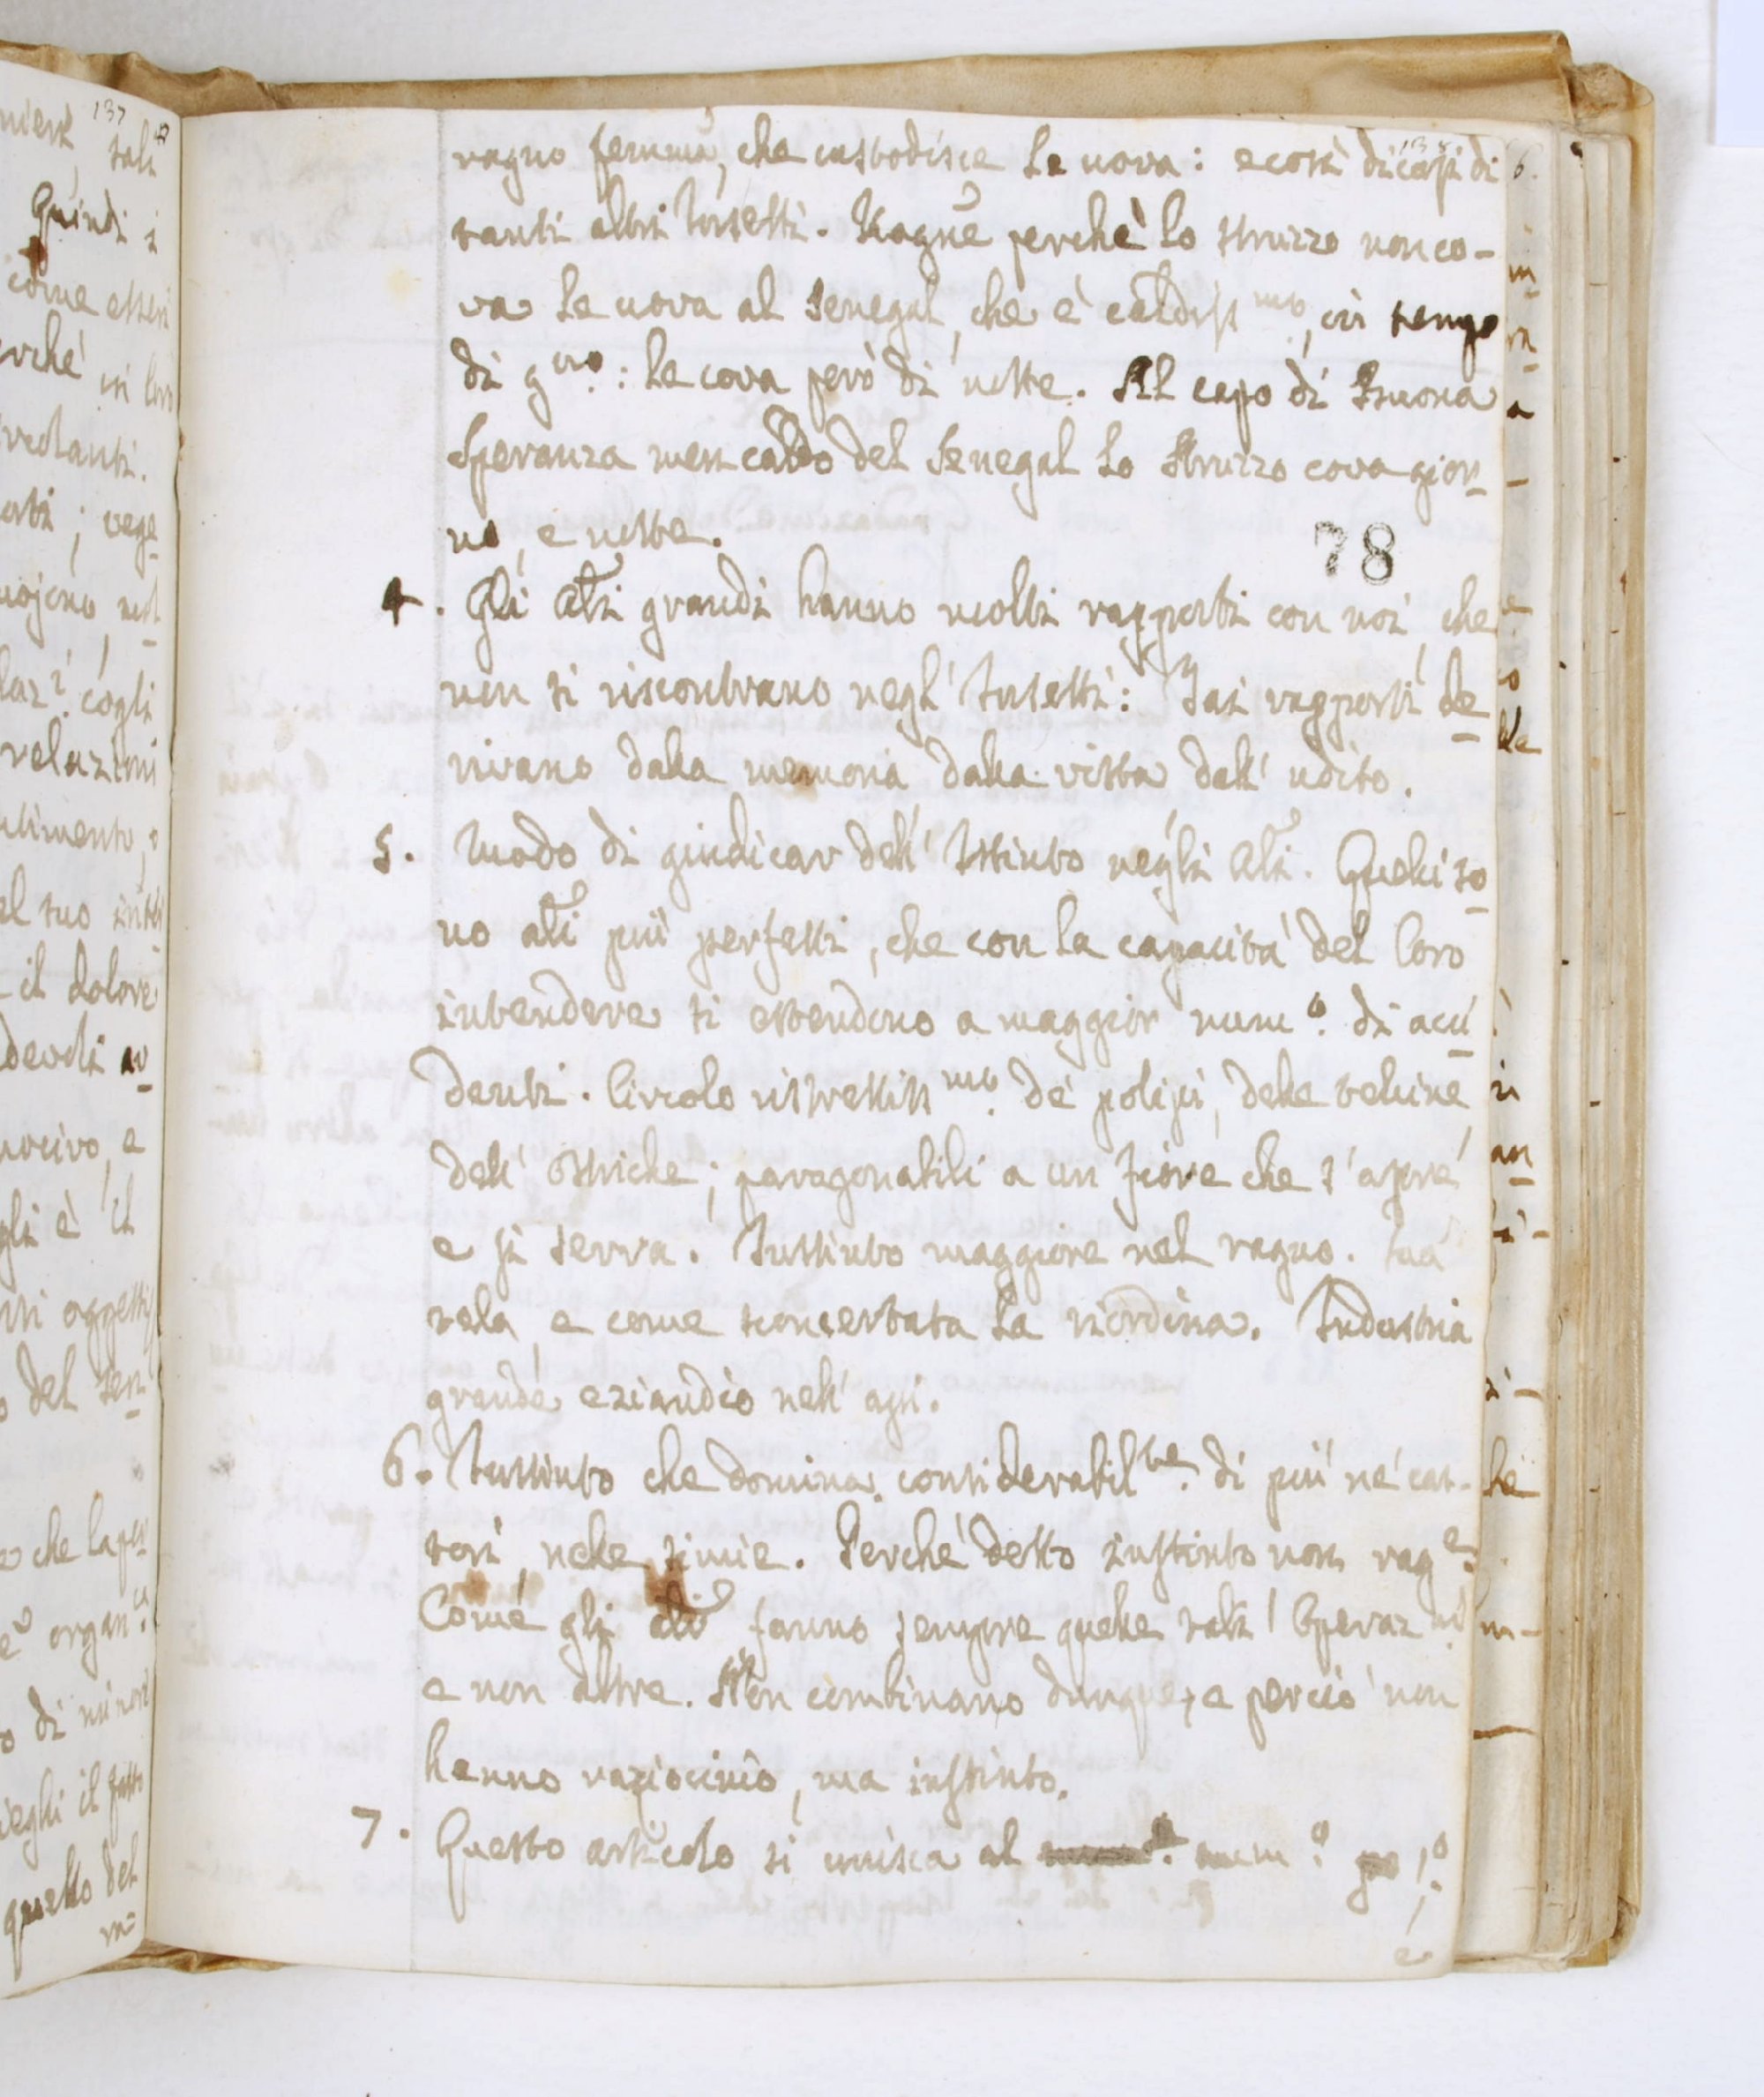 138.
ragno femina, che custodisce le uova: e così dicasi di
tanti altri Insetti. Ragne perchè lo struzzo non co-
va le uova al Senegal, che è caldiss.mo, in tempo
di g.no: le cova però di notte. Al capo di Buona
Speranza men caldo del Senegal lo Struzzo cova gior-
no, e notte.
78
4. Gli ali grandi hanno molti rapporti con noi, che
non si riscontrano negl' Insetti: Tai rapporti de-
rivano dalla memoria dalla vista dell' udito.
5. Modo di giudicar dell' Istinto negli ali. Quelli so-
no ali più perfetti, che con la capacità del loro
intendere si estendono a maggior num.o di acci-
denti. Circolo ristrettiss.mo de' polipi, delle telline,
dell' ostriche; paragonabili a un fiore che s' apre
e si serra. Instinto maggiore nel ragno. sua
tela, e come sconcertata la riordina. Industria
grande eziandio nell' api.
6. Instinto che domina considerabil.te di più ne' cas-
tori, nelle simie. Perchè detto instinto non rag.e
Come gli ali fanno sempre quelle tali Operaz.ni
e non altre. Non combinano dunque, e perciò non
hanno raziocinio, ma instinto.
7. Questo articolo si unisca al num.o 1.o
e
137
tali
Quindi i
come esseri
in loro
; vege-
cogli
relazioni
il dolore
gli è il
oggetti
del sen-
che la per-
organ.ca
di
il fatto
quello del